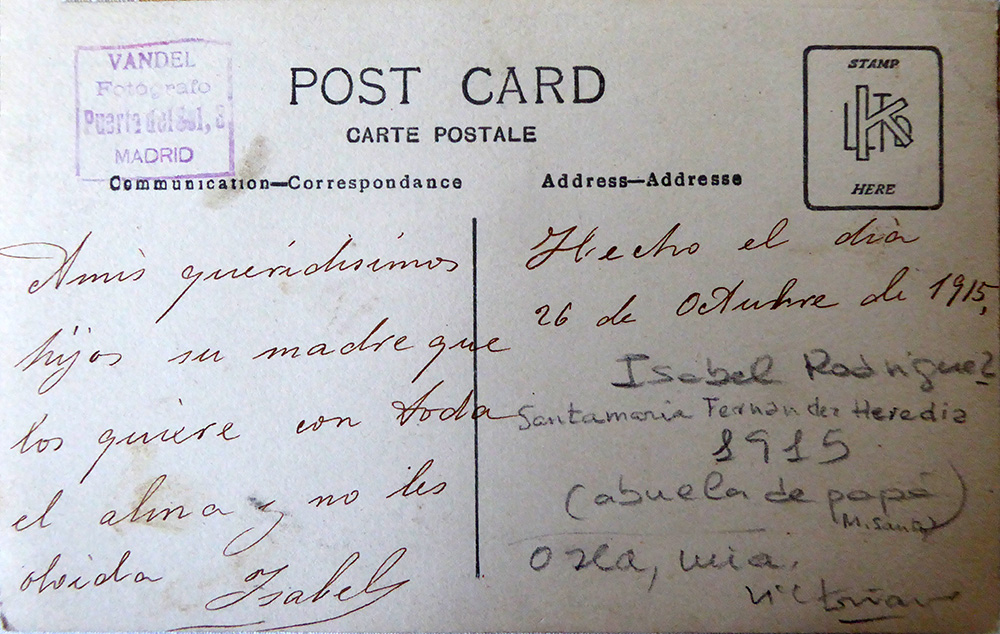 VANDEL
Fotógrafo
Puerta del Sol, 8
MADRID
POST CARD
CARTE POSTALE
Communication—Correspondance
Address—Addresse
STAMP
HERE
Amis queridisimos
hijos su madre que
los quiere con toda
el alma y no les
olvida Isabel
Hecho el dia
26 de Octubre de 1915,
Isabel Rodriguez
Santamaria Fernandez Heredia
1915
(abuela de papá
(M. Santa)
O sea, mia.